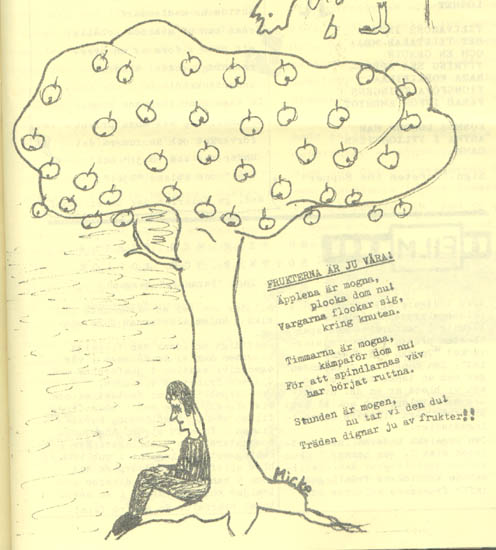 FRUKTERNA ÄR JU VÅRA!
Äpplena är mogna,
plocka dom nu!
Vargarna flockar sig,
kring knuten.
Timmarna är mogna,
kämpaför dom nu!
För att spindlarnas väv
har börjat ruttna.
Stunden är mogen,
nu tar vi den du!
Träden dignar ju av frukter!!
Micko
FILM